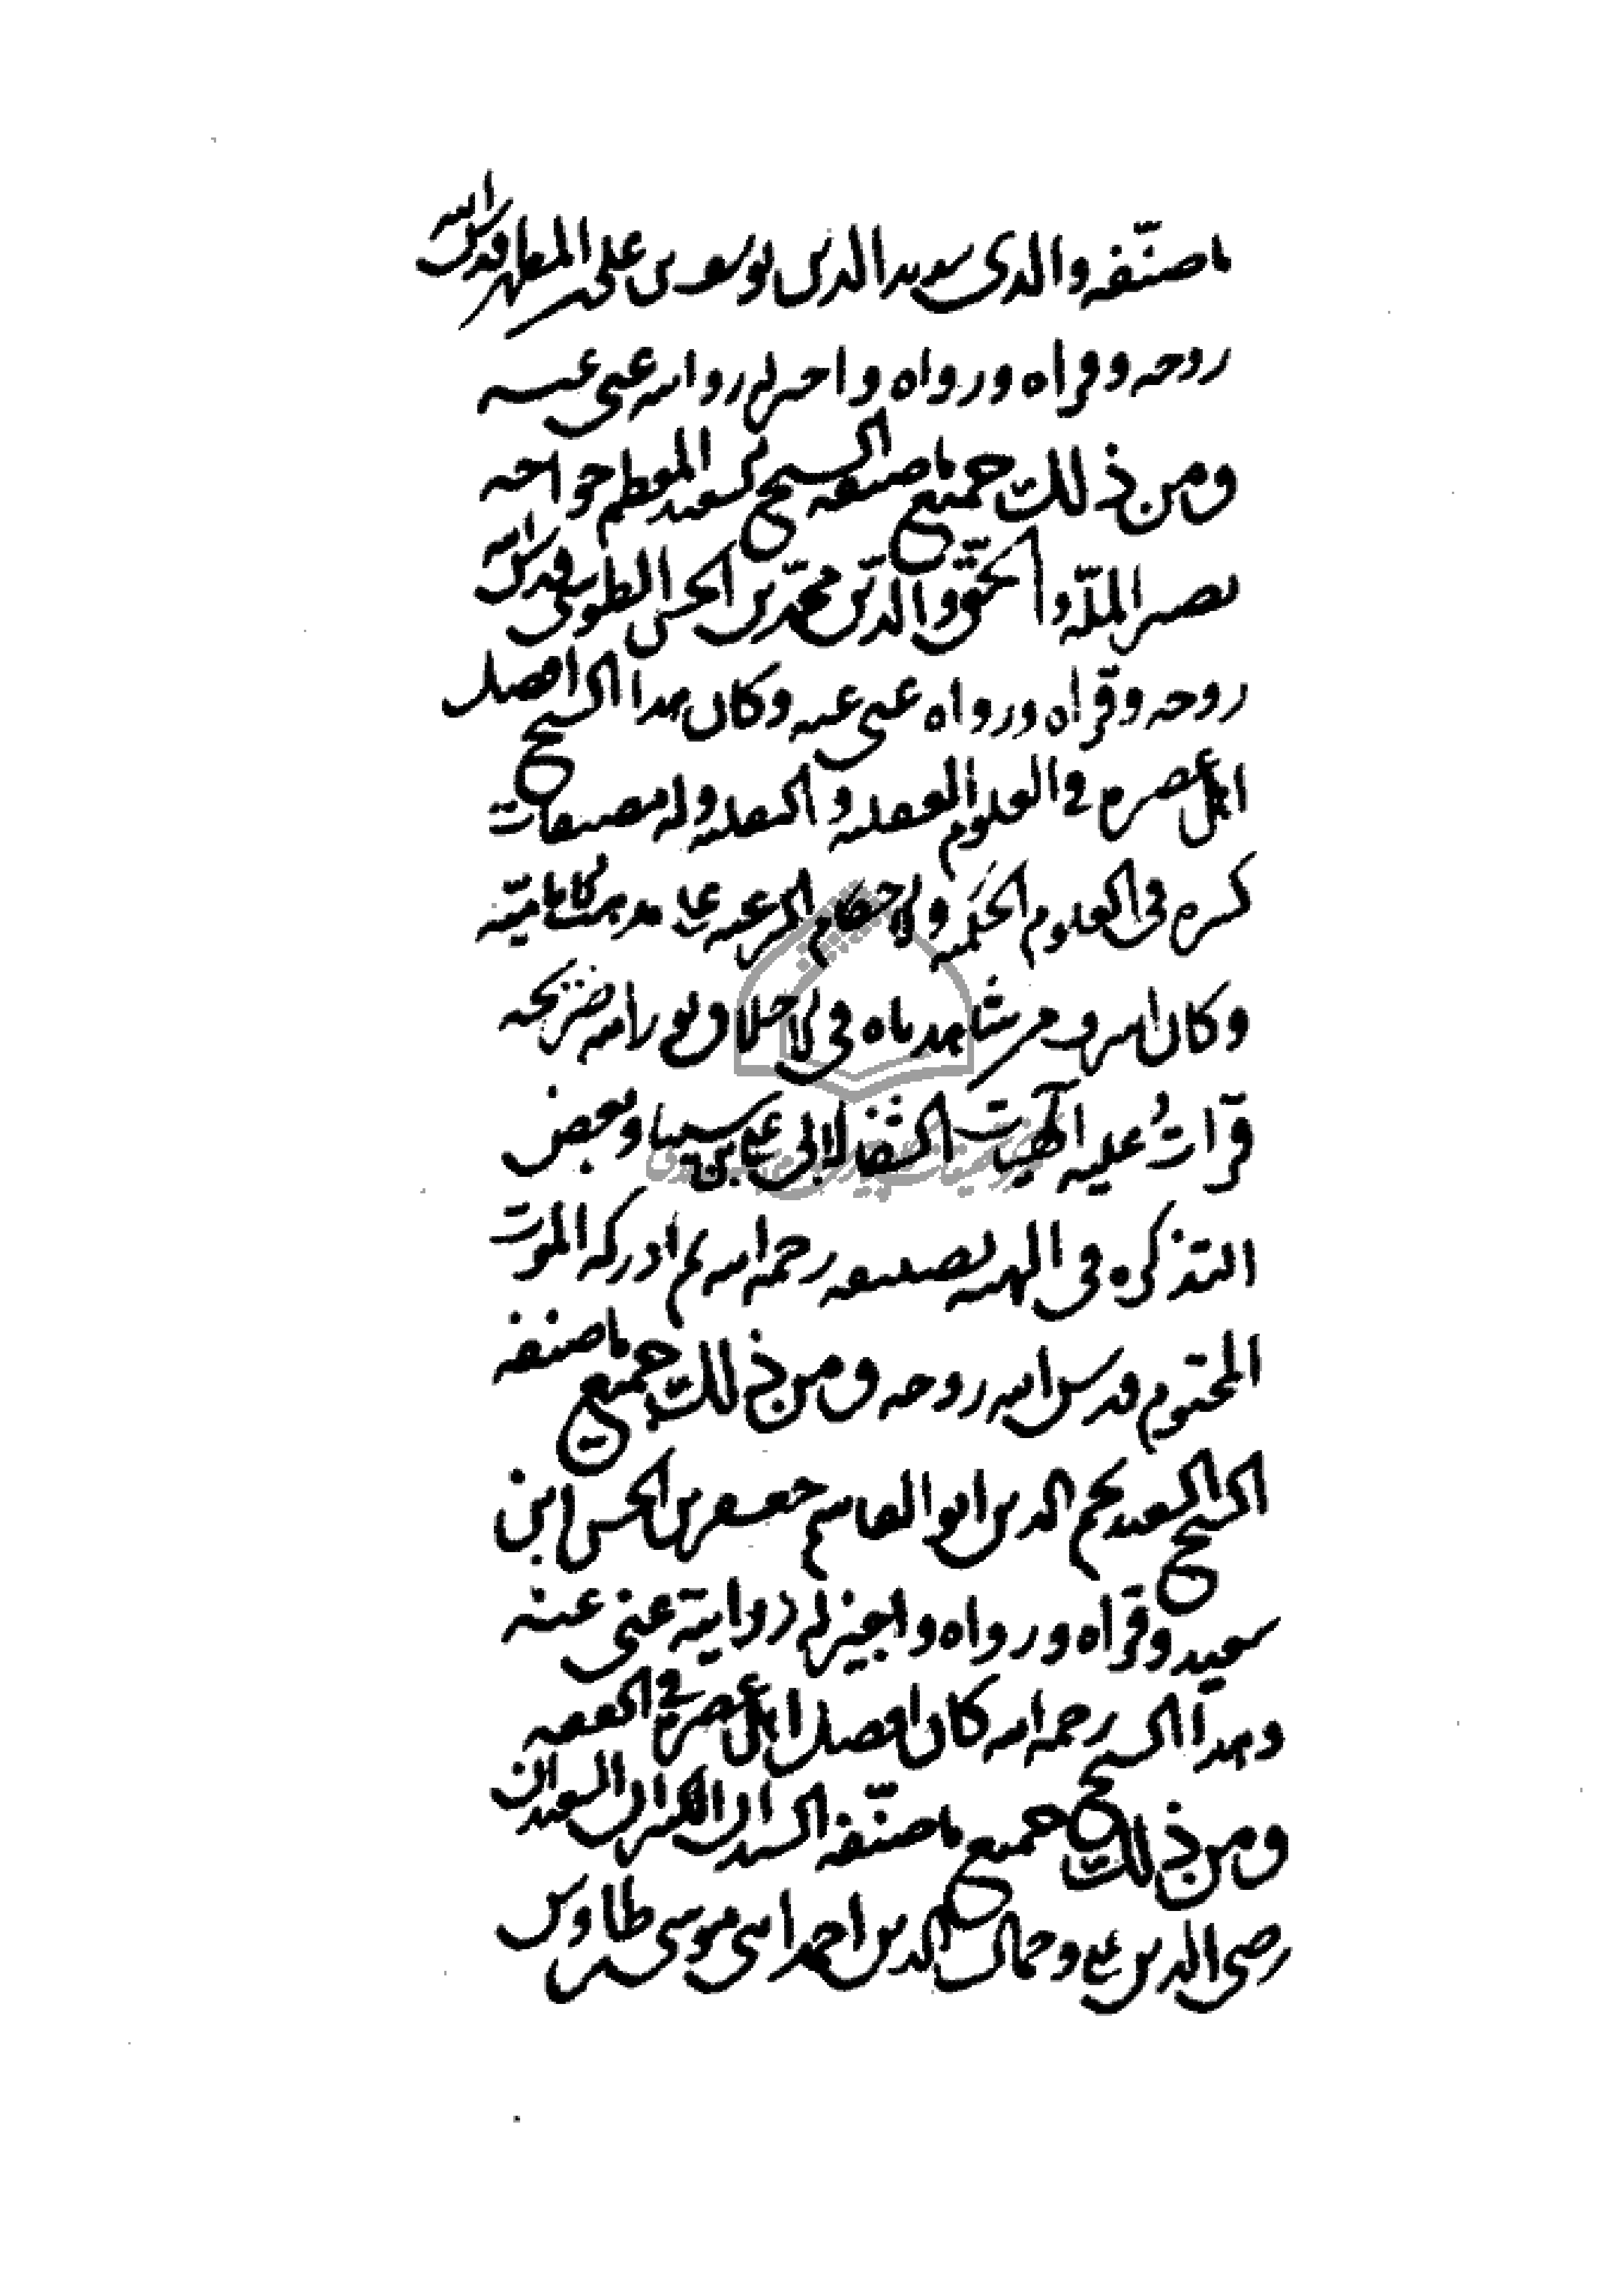 ما صنّفه والدی سدید الدین یوسف بن علی بن المطهر قدس الله
روحه وقراه ورواه واجیز له روایته عنی عنه
ومن ذلك جمیع ما صنفه الشیخ السعید المعظم خواجه
نصیر الملّة والحقّ والدّین محمّد بن الحسن الطوسی قدس الله
روحه وقرّاه ورواه عنی عنه وكان هذا الشیخ افضل
اهل عصره فی العلوم العقلیه والنقلیه وله مصنفات
كثیره فی العلوم الحكمیه والاحكام الشرعیه علی مذهب الامامیّه
وكان اشرف من شاهدناه فی الاخلاق نور الله ضریحه
قرأتُ علیه الهیات الشفا لابی علی بن سینا وبعض
التذكره فی الهیئه تصنیفه رحمه الله ثم ادركه الموت
المحتوم قدس الله روحه ومن ذلك جمیع ما صنفه
الشیخ السعید نجم الدین ابو القاسم جعفر بن الحسن ابن
سعید وقرأه ورواه واجیز له روایته عنی عنه
وهذا الشیخ رحمه الله كان افضل اهل عصره فی الفقه
ومن ذلك جمیع ما صنّفه السیدان الكبیران السعیدان
رضی الدین علی وجمال الدین احمد ابنی موسی بن طاوس